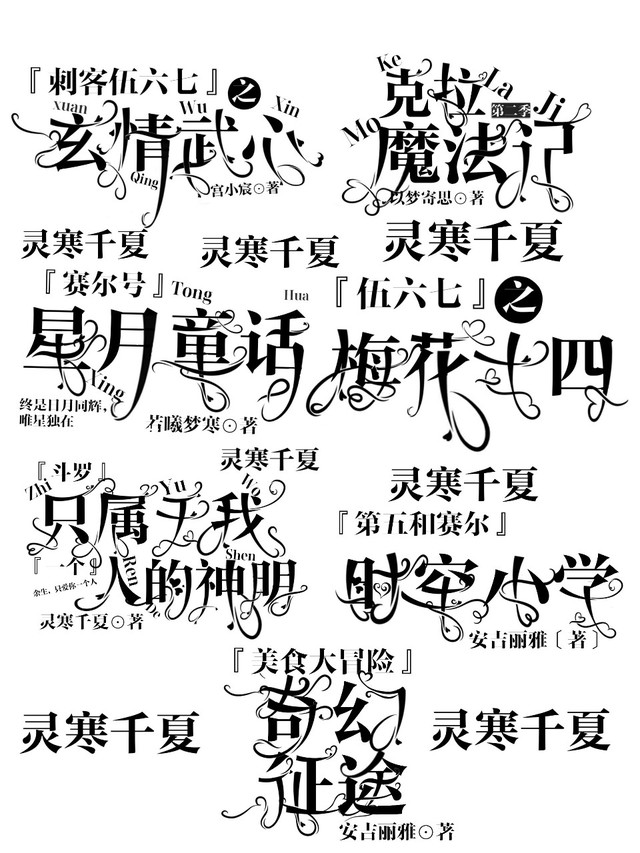 『刺客伍六七』之
Xuan Wu Xin
玄情武心
Qing
宫小宸⊙著
Ke La Ji
克拉
第二季
Mo
魔法记
以梦寄思⊙著
灵寒千夏
灵寒千夏
灵寒千夏
『赛尔号』Tong Hua
星月童话
Xing
终是日月同辉，
唯星独在
若曦梦寒⊙著
『伍六七』之
梅花十四
灵寒千夏
灵寒千夏
『斗罗』
Zhi Yu Wo
只属于我
『一个』 Ren De Shen
人的神明
余生，只爱你一个人
灵寒千夏⊙著
『第五和赛尔』
时牢小学
安吉丽雅〔著〕
『美食大冒险』
奇幻
征途
灵寒千夏
灵寒千夏
安吉丽雅⊙著